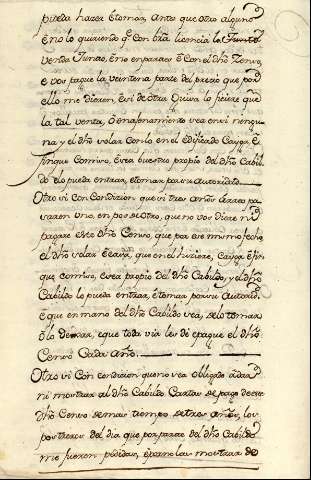 pueda hazer è tomar, anto que otro alguno
è no lo queriendo q̃ con br̃a licencia le Junto
venda Junto, è no en parares è Con el dh̃o Zenso,
è vos pague la veintena parte del precio que por
ello me dieren, è si de otra Guisa lo hiciere que
la tal venta, ò enagenamiento vea en si ningu
na y el dh̃o solar Con lo en el edificado Cayga, è
finque Comiso, è sea vuestro propio del dh̃o Cabil
do èlo pueda entrar, è tomar por su Autoridad
Otro si con Condicion que si tres años Arreo pa
saren uno, en pos de otro, que no vos diere ni
pagare este dh̃o Censo, que por ese mismo fecho
el dh̃o solar è casa, que en el hiziere, Cayga è fin
que comiso, è sea propio del dh̃o Cabildo, y el dh̃o
Cabildo lo pueda entrar, è tomar por su Autorid
è que en mano del dh̃o Cabildo sea, de lo tomar
ò lo dexar, è que toda via les dè è pague el dh̃o
Censo Cada año.
Otro si Con condicion que no sea obligado à dar
ni mostrar al dh̃o Cabildo Cartas de pago de este
dh̃o Censo de mas tiempo de tres años, los
postreros del dia que por parte del dh̃o Cabildo
me fueren pedidas, è para las mostrar de